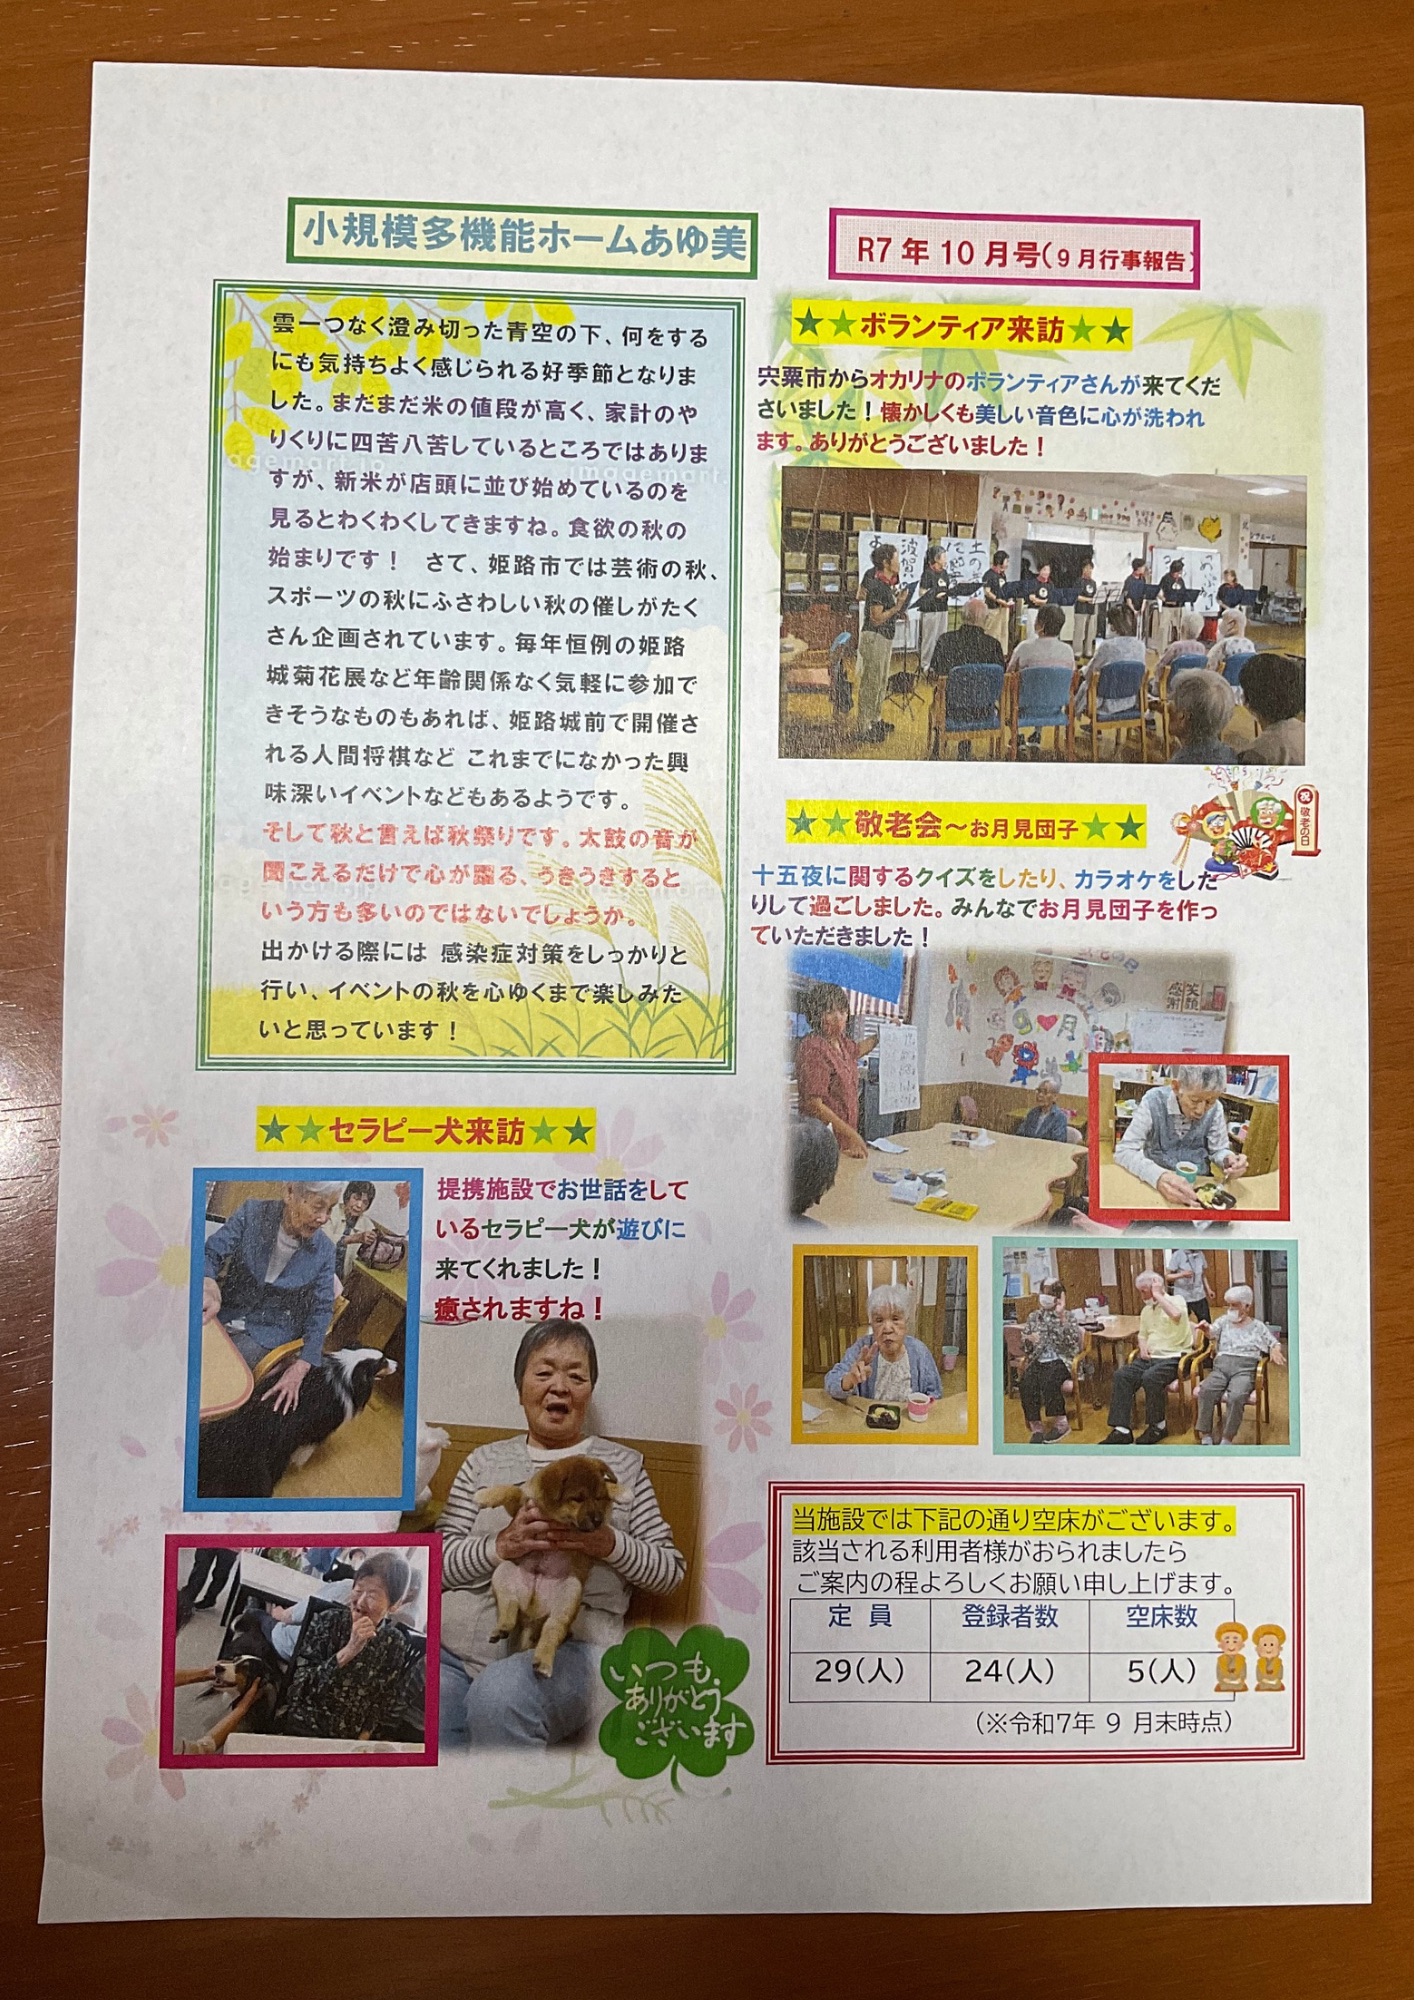 小規模多機能ホームあゆ美
R7年10月号(9月行事報告)
雲一つなく澄み切った青空の下、何をする
にも気持ちよく感じられる好季節となりま
した。まだまだ米の値段が高く、家計のや
りくりに四苦八苦しているところではありま
すが、新米が店頭に並び始めているのを
見るとわくわくしてきますね。食欲の秋の
始まりです！ さて、姫路市では芸術の秋、
スポーツの秋にふさわしい秋の催しがたく
さん企画されています。毎年恒例の姫路
城菊花展など年齢関係なく気軽に参加で
きそうなものもあれば、姫路城前で開催さ
れる人間将棋など これまでになかった興
味深いイベントなどもあるようです。
そして秋と言えば秋祭りです。太鼓の音が
聞こえるだけで心が躍る、うきうきすると
いう方も多いのではないでしょうか。
出かける際には 感染症対策をしっかりと
行い、イベントの秋を心ゆくまで楽しみた
いと思っています！
★★セラピー犬来訪★★
提携施設でお世話をして
いるセラピー犬が遊びに
来てくれました！
癒されますね！
いつも
ありがとう
ございます
★★ボランティア来訪★★
宍粟市からオカリナのボランティアさんが来てくだ
さいました！懐かしくも美しい音色に心が洗われ
ます。ありがとうございました！
★★敬老会～お月見団子★★
祝
敬老の日
十五夜に関するクイズをしたり、カラオケをした
りして過ごしました。みんなでお月見団子を作っ
ていただきました！
笑顔
感謝
9♥月
当施設では下記の通り空床がございます。
該当される利用者様がおられましたら
ご案内の程よろしくお願い申し上げます。
定 員 登録者数 空床数
29(人) 24(人) 5(人)
(※令和7年 9 月末時点)